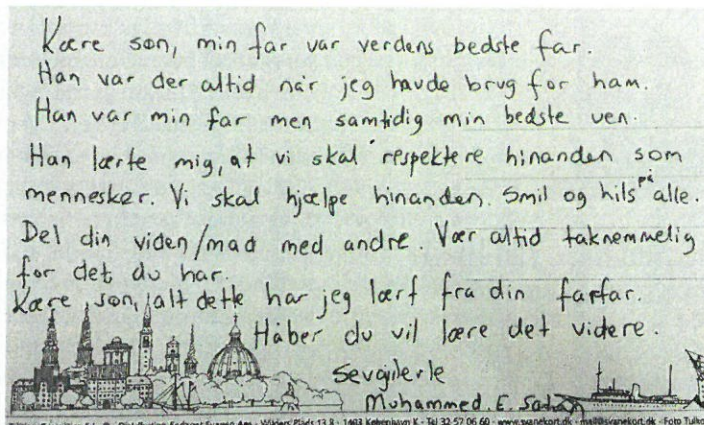 Kære søn, min far var verdens bedste far.
Han var der altid når jeg havde brug for ham.
Han var min far men samtidig min bedste ven.
Han lærte mig, at vi skal respektere hinanden som
mennesker. Vi skal hjælpe hinanden. Smil og hils på alle.
Del din viden/mad med andre. Vær altid taknemmelig
for det du har.
Kære søn, alt dette har jeg lært fra din farfar.
Håber du vil lære det videre.
Sevgilerle
Muhammed. E.
Wilders Plads 13 B - 1403 København K - Tel 32 57 06 60 - www.svanekort.dk - mail@svanekort.dk - Foto